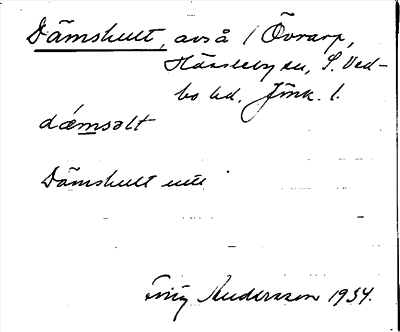 Dämshult, avså / Övrarp,
Hässleby sn, S. Ved-
bo hd. Jönk. l.
dámsolt
Dämshult uttl
Andersson 1934.